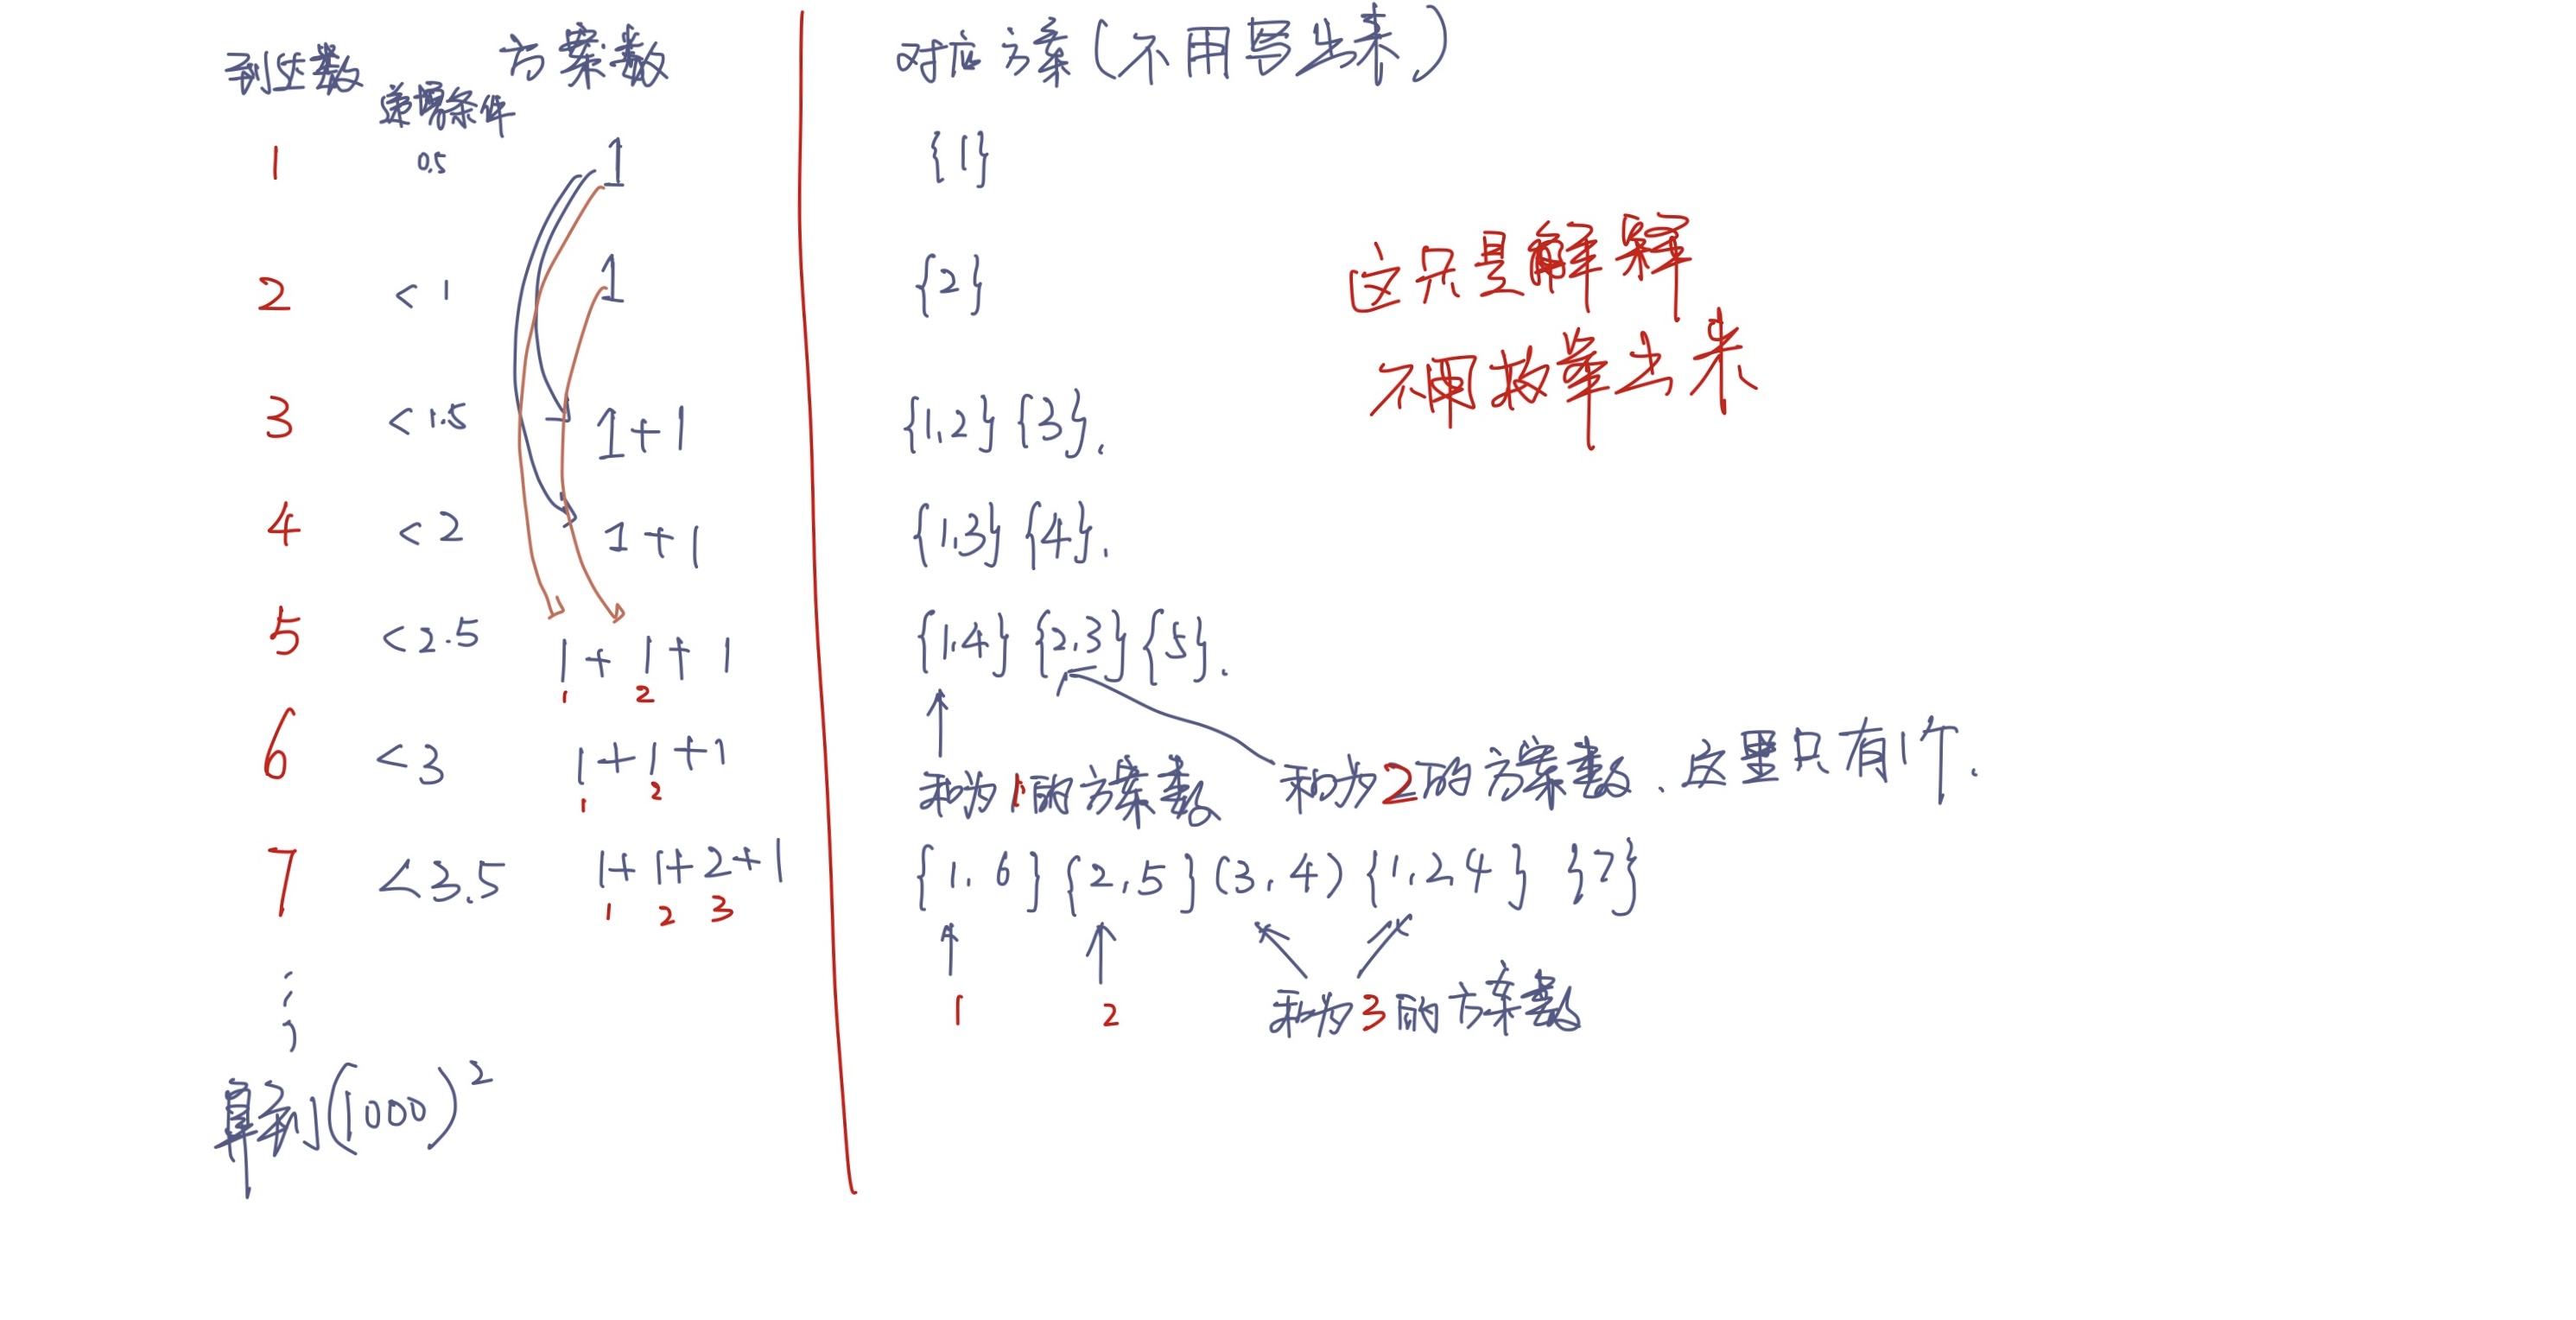 到达数 递增条件 方案数 对应方案(不用写出来)
1 0.5 1 {1}
2 <1 1 {2}
3 <1.5 1+1 {1,2} {3}.
4 <2 1+1 {1,3} {4}.
5 <2.5 1+1+1 {1,4} {2,3} {5}.
1 2
6 <3 1+1+1
1 2
和为1的方案数 和为2的方案数、这里只有1个.
7 <3.5 1+1+2+1 {1,6} {2,5} (3,4) {1,2,4} {7}
1 2 3
1 2 和为3的方案数
算到(1000)²
这只是解释
不用枚举出来